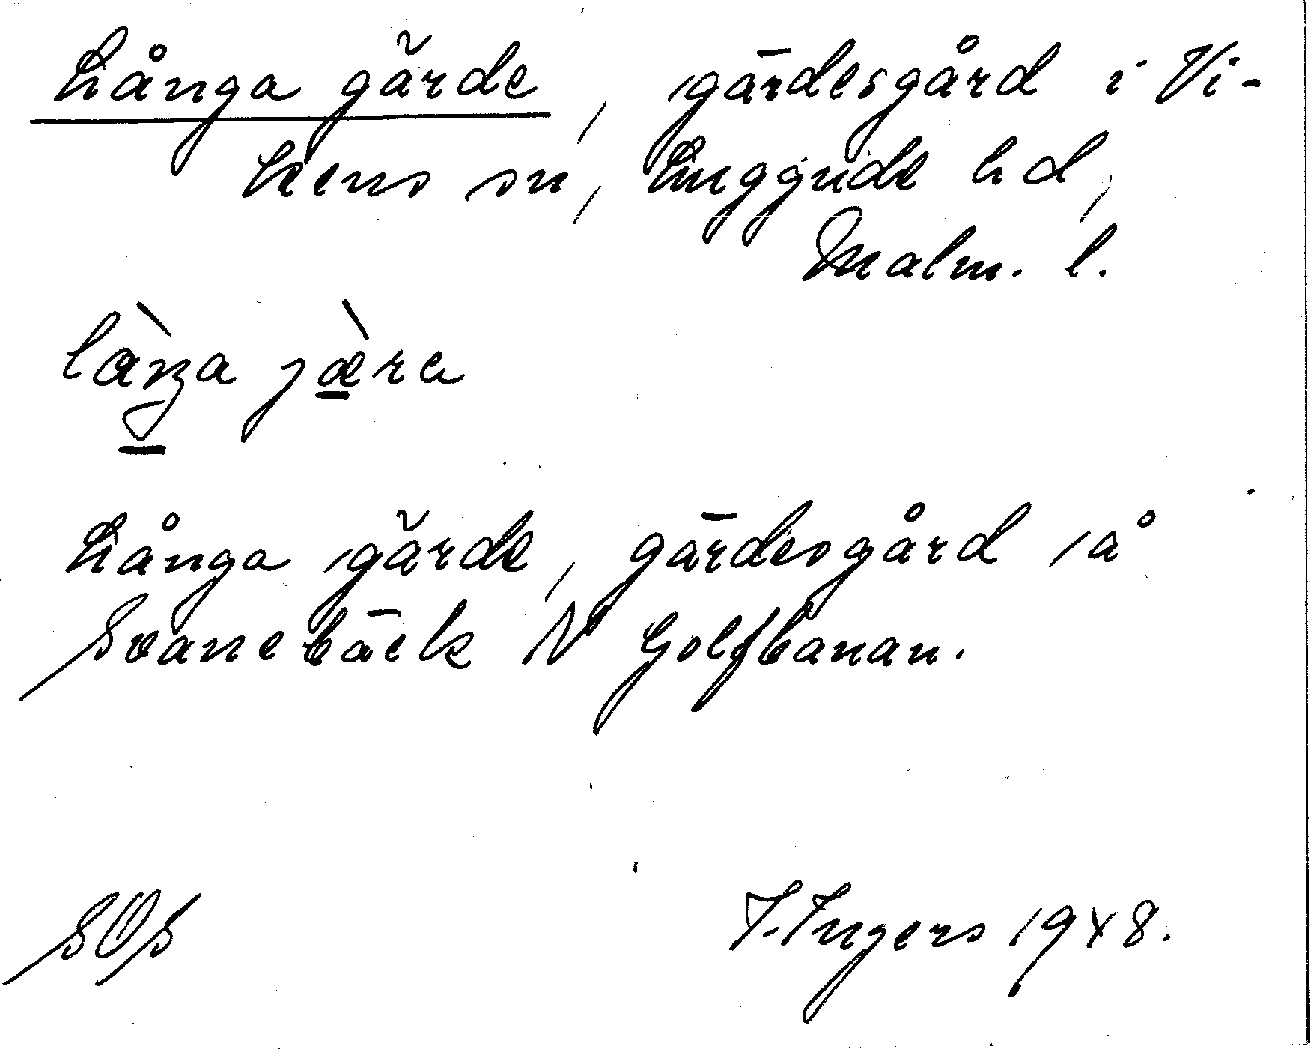 Långa gärde, gärdesgård i Vi-
kens sn, Luggude hd,
Malm. l.
làŋa jæ̀ra
Långa gärde, gärdesgård å
Svanebäck N Golfbanan.
SOS I. Ingers 1948.